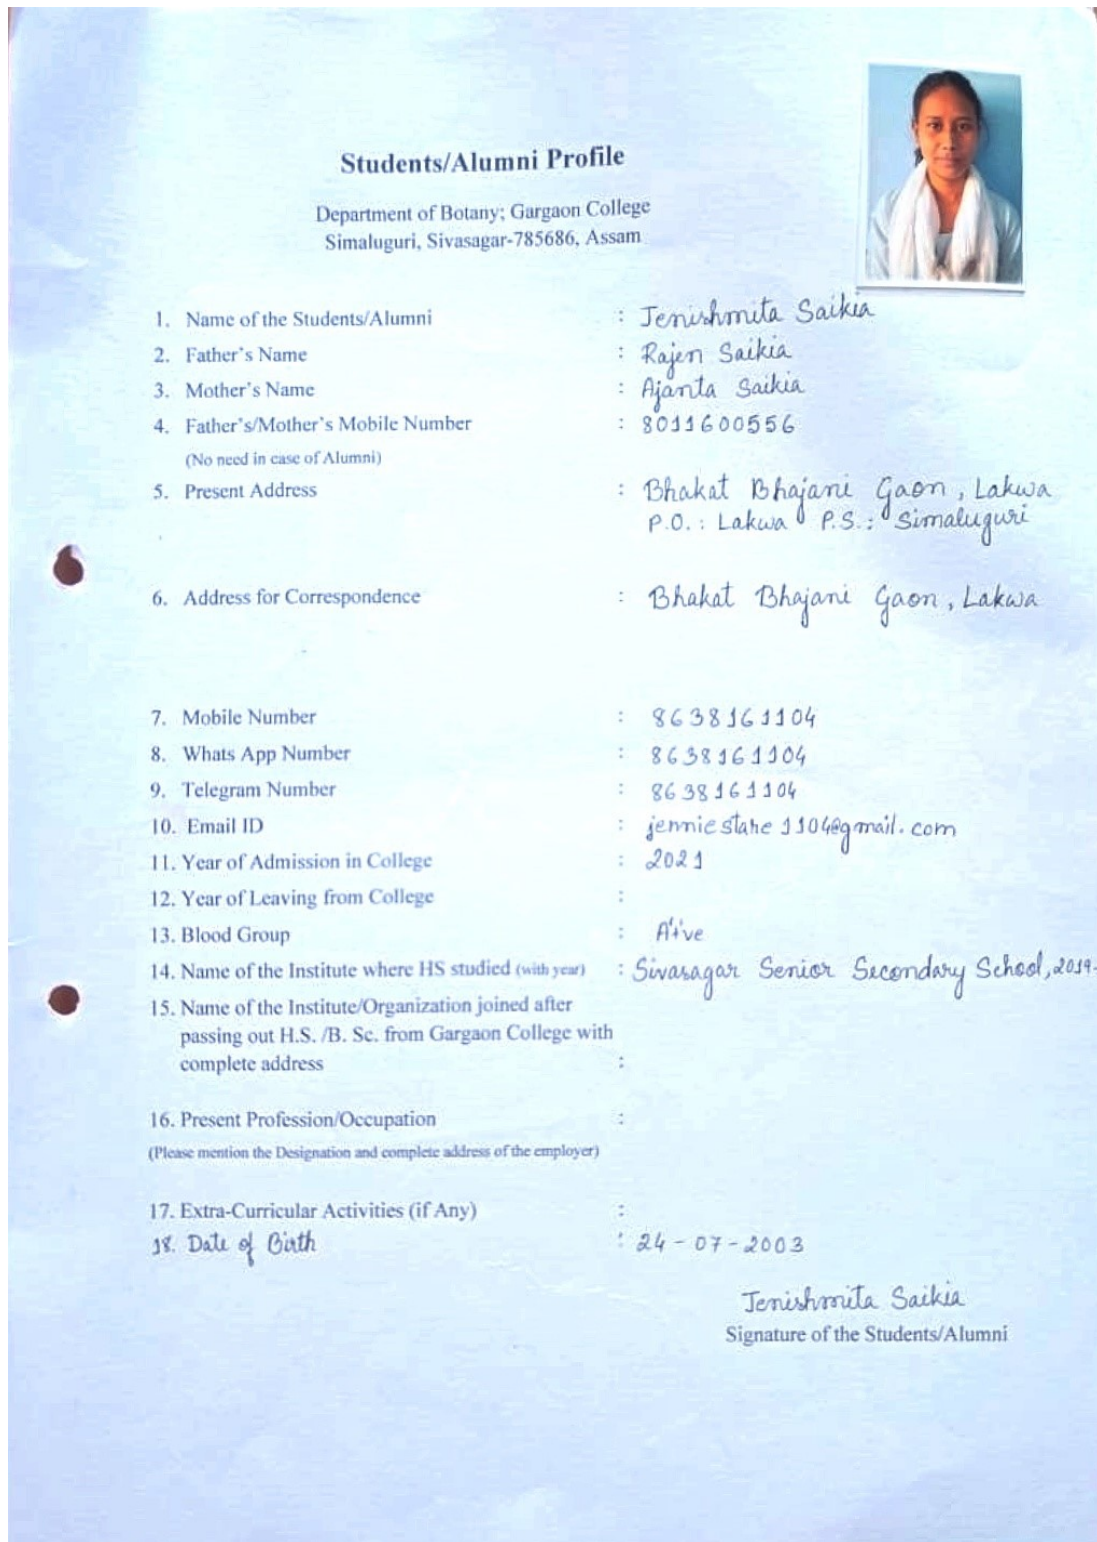 Students/Alumni Profile
Department of Botany; Gargaon College
Simaluguri, Sivasagar-785686, Assam
1. Name of the Students/Alumni : Jenishmita Saikia
2. Father's Name : Rajen Saikia
3. Mother's Name : Ajanta Saikia
4. Father's/Mother's Mobile Number : 8011600556
(No need in case of Alumni)
5. Present Address : Bhakat Bhajani Gaon, Lakwa
P.O.: Lakwa P.S.: Simaluguri
6. Address for Correspondence : Bhakat Bhajani Gaon, Lakwa
7. Mobile Number : 8638161104
8. Whats App Number : 8638161104
9. Telegram Number : 8638161104
10. Email ID : jenniestahe1104@gmail.com
11. Year of Admission in College : 2021
12. Year of Leaving from College :
13. Blood Group : A+ve
14. Name of the Institute where HS studied (with year) : Sivasagar Senior Secondary School, 2019-
15. Name of the Institute/Organization joined after
passing out H.S. /B. Sc. from Gargaon College with
complete address :
16. Present Profession/Occupation :
(Please mention the Designation and complete address of the employer)
17. Extra-Curricular Activities (if Any) :
18. Date of Birth : 24-07-2003
Jenishmita Saikia
Signature of the Students/Alumni